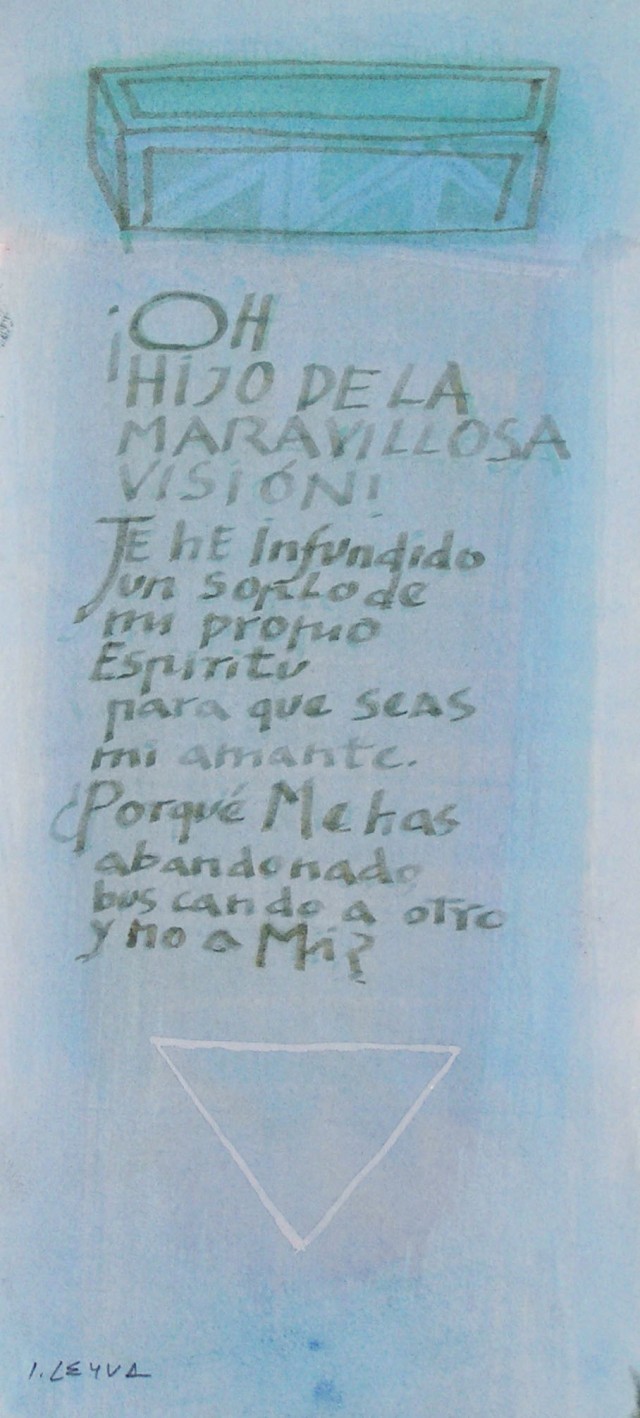 ¡OH
HIJO DE LA
MARAVILLOSA
VISIÓN!
TE hE Infundido
un soplo de
mi propio
Espiritu
para que SEAS
mi amante.
¿Porqué Me has
abandonado
buscando a otro
y no a Mi?
I. LEYVA